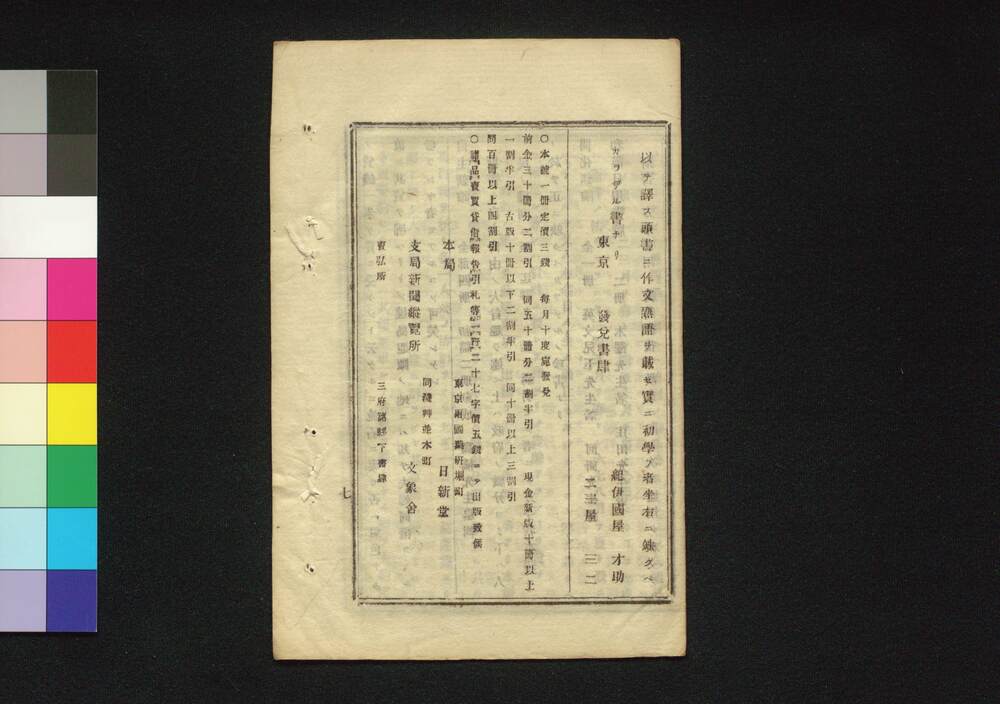 以テ譯ス頭書ニ作文熟語ヲ載セ實ニ初學ノ者坐右ニ缺クベ
カラザル書ナリ
東京 發兌書肆 紀伊國屋 才助
三二
〇本誌一冊定價三錢 毎月十度宛發兌
前金三十冊分二割引 同五十冊分二割半引 現金新版十冊以上
一割半引 古版十冊以下二割半引 同十冊以上三割引
同百冊以上四割引
〇諸品賣買貸借報告引札等二百二十七字價五錢ニテ出版致候
本局 東京兩國藥研堀町 日新堂
支局新聞縱覽所 同淺艸並木町 文象舍
賣弘所 三府諸縣下書肆
七